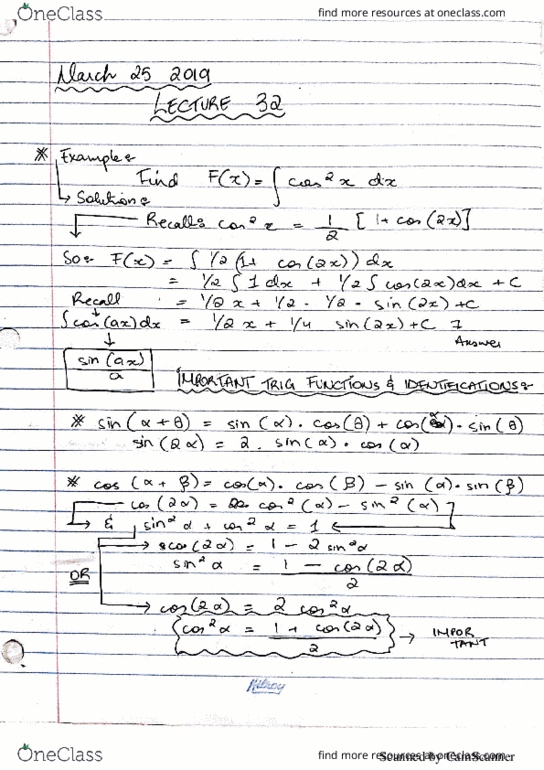 OneClass
find more resources at oneclass.com
March 25 2019
LECTURE 32
* Example:
Find F(x) = ∫ cos² x dx
↳ Solution:
Recall: cos² x = 1/2 [1 + cos(2x)]
So: F(x) = ∫ 1/2 (1 + cos(2x)) dx
= 1/2 ∫ 1 dx + 1/2 ∫ cos(2x) dx + C
Recall = 1/2 x + 1/2 · 1/2 · sin(2x) + C
∫ cos(ax) dx = 1/2 x + 1/4 sin(2x) + C
Answer
sin(ax)/a
IMPORTANT TRIG FUNCTIONS & IDENTIFICATIONS:
* sin(α + θ) = sin(α) · cos(θ) + cos(α) · sin(θ)
sin(2α) = 2 · sin(α) · cos(α)
* cos(α + β) = cos(α) · cos(β) − sin(α) · sin(β)
cos(2α) = cos²(α) − sin²(α)
& sin²α + cos²α = 1
→ cos(2α) = 1 − 2 sin²α
sin²α = 1 − cos(2α) / 2
OR
→ cos(2α) = 2 cos²α
cos²α = 1 + cos(2α) / 2 → IMPORTANT
Hilroy
OneClass
find more resources at oneclass.com
Scanned by CamScanner